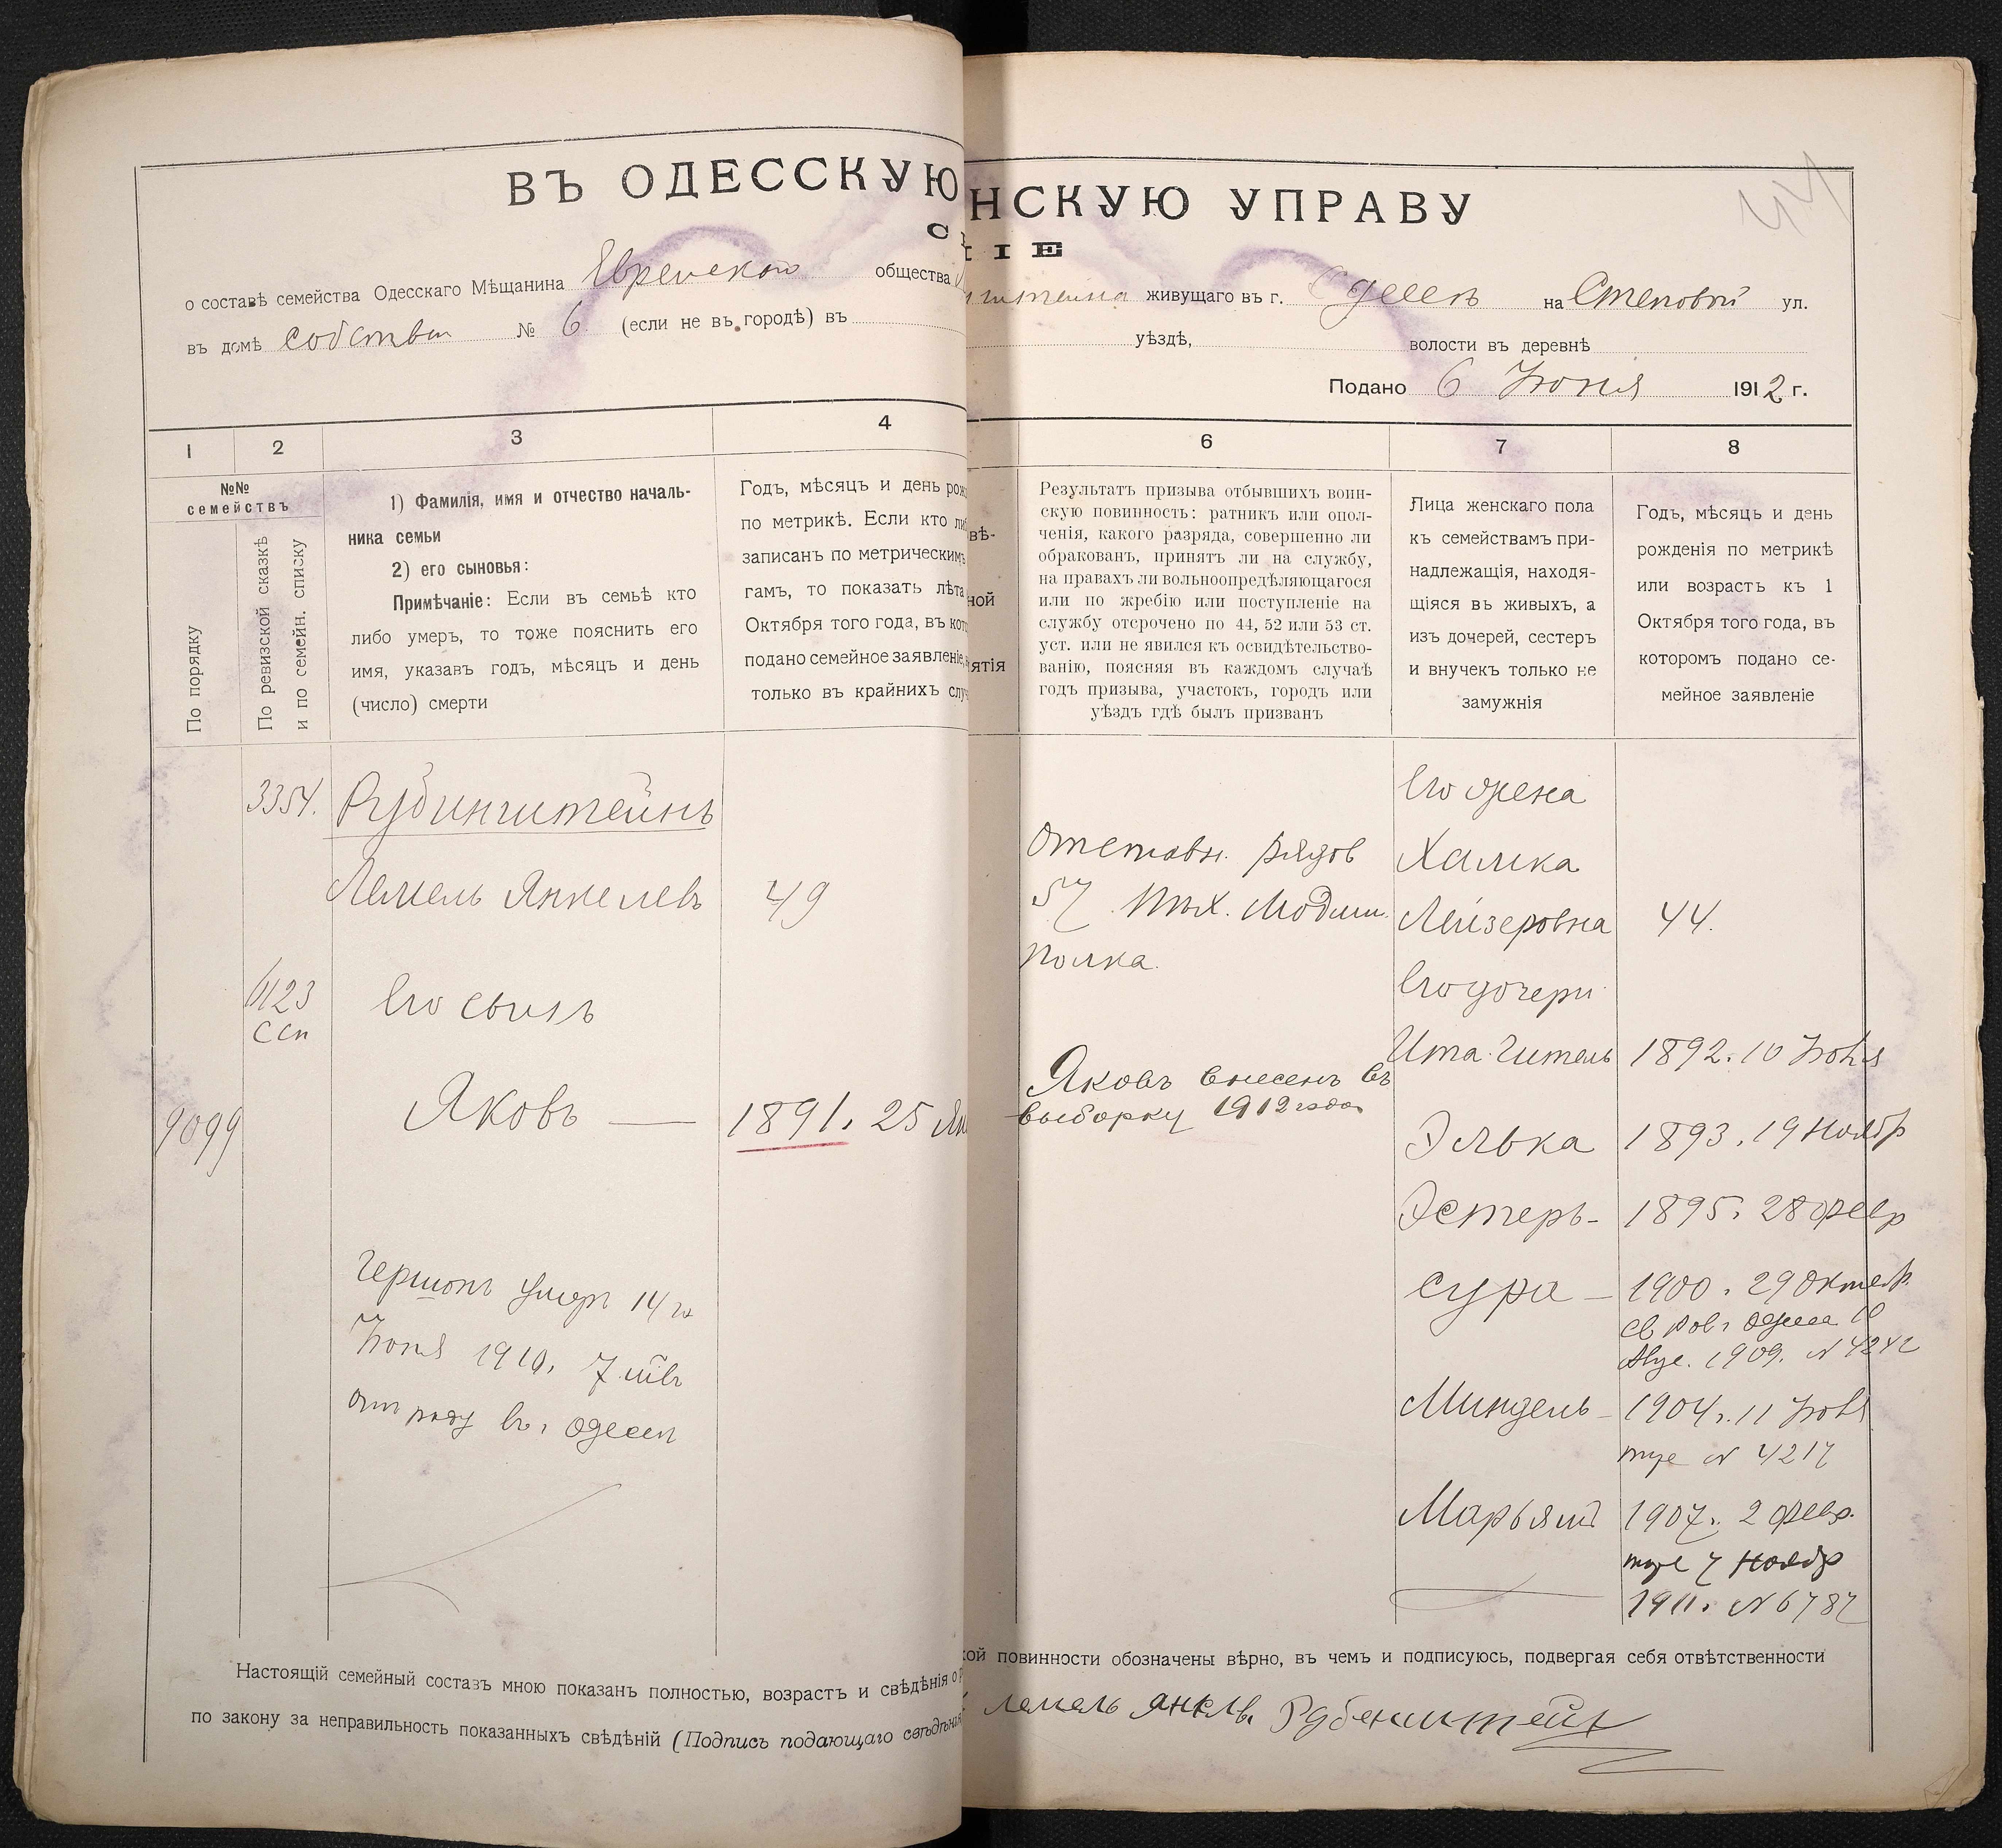 ВЪ ОДЕССКУЮ
НСКУЮ УПРАВУ
ІЕ
о составѣ семейства Одесскаго Мѣщанина Еврейскаго общества
живущаго въ г. Одессѣ на Степовой ул.
въ домѣ собствен № 6 (если не въ городѣ) въ
уѣздѣ, волости въ деревнѣ
Подано 6 Іюня 1912 г.
1 2 3 4
6 7 8
№№
семействъ
По порядку
По ревизской сказкѣ
и по семейн. списку
1) Фамилія, имя и отчество началь-
ника семьи
2) его сыновья:
Примѣчаніе: Если въ семьѣ кто
либо умеръ, то тоже пояснить его
имя, указавъ годъ, мѣсяцъ и день
(число) смерти
Годъ, мѣсяцъ и день рож
по метрикѣ. Если кто ли
записанъ по метрическимъ
гамъ, то показать лѣта
Октября того года, въ кот
подано семейное заявленіе,
только въ крайнихъ слу
вѣ-
ной
ятія
Результатъ призыва отбывшихъ воин-
скую повинность: ратникъ или опол-
ченія, какого разряда, совершенно ли
обракованъ, принятъ ли на службу,
на правахъ ли вольноопредѣляющагося
или по жребію или поступленіе на
службу отсрочено по 44, 52 или 53 ст.
уст. или не явился къ освидѣтельство-
ванію, поясняя въ каждомъ случаѣ
годъ призыва, участокъ, городъ или
уѣздъ гдѣ былъ призванъ
Лица женскаго пола
къ семействамъ при-
надлежащія, находя-
щіяся въ живыхъ, а
изъ дочерей, сестеръ
и внучекъ только не
замужнія
Годъ, мѣсяцъ и день
рожденія по метрикѣ
или возрасть къ 1
Октября того года, въ
которомъ подано се-
мейное заявленіе
3354. Рубингштейнъ
Лемель Янкелевъ 49
1123
ССп
Его сынъ
9099 Яковъ — 1891. 25 Ян
Гершонъ умеръ 14 го
Іюня 1910.
въ г. Одессѣ
Отставн. рядов
57 Пѣх. Модлин.
полка.
Яковъ внесенъ въ
выборку 1912 года
Его жена
Хайка
Лейзеровна 44.
Его дочери
Ита-Гитель 1892. 10 Іюня
Элька 1893. 19 Ноябр
Эстеръ - 1895. 28 февр
Сура — 1900. 29 Октяб.
св Одесса 10
Авг. 1909. N 4242
Миндель - 1904. 11 Іюля
тоже N 4217
Марьямъ 1907. 2 февр.
тоже 7 Ноябр
1911. N 6787
Настоящій семейный составъ мною показанъ полностью, возрастъ и свѣдѣнія о
ой повинности обозначены вѣрно, въ чемъ и подписуюсь, подвергая себя отвѣтственности
по закону за неправильность показанныхъ свѣдѣній (Подпись подающаго свѣдѣнія
Лемель Янкелв. Рубенштейн